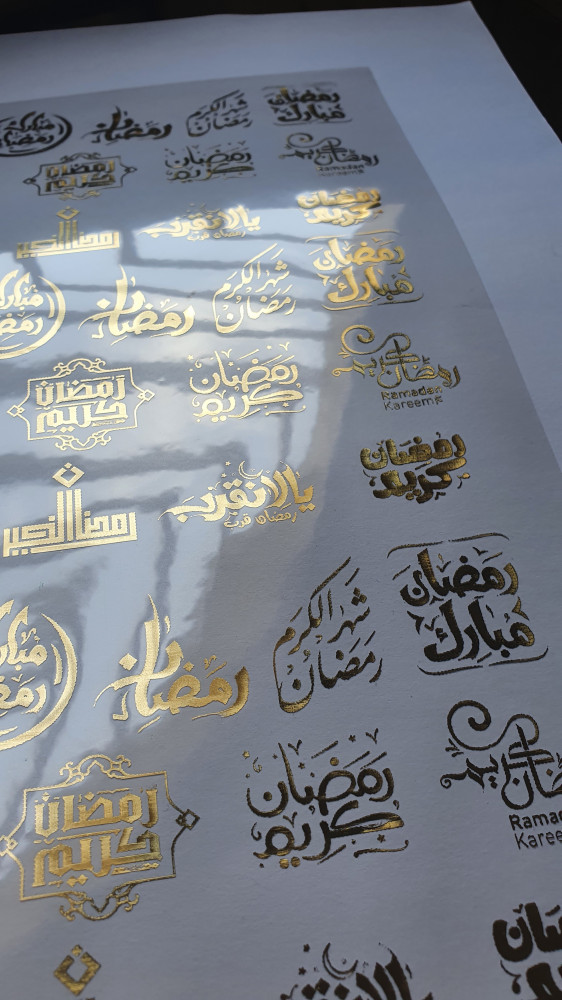 رمضان
مبارك
شهر الكرم
رمضان
رمضان
مبارك
رمضان
رمضان كريم
Ramadan
Kareem
رمضان
كريم
رمضان
كريم
رمضان
كريم
يالا نقرب
رمضان قرب
رمضان الخير
رمضان
مبارك
شهر الكرم
رمضان
رمضان
مبارك
رمضان
رمضان كريم
Ramadan
Kareem
رمضان
كريم
رمضان
كريم
رمضان
كريم
يالا نقرب
رمضان قرب
رمضان الخير
رمضان
مبارك
شهر الكرم
رمضان
رمضان
مبارك
رمضان
كريم
رمضان
كريم
رمضان
كريم